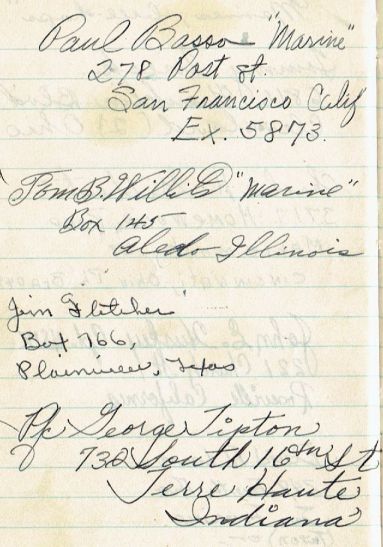 Paul Basso "Marine"
278 Post St.
San Francisco Calif
Ex. 5873.
Tom B. Willis "Marine"
Box 145
Aledo Illinois
Jim Fletcher
Box 766,
Plainview, Texas
Pfc George Tipton
732 South 16th St
Terre Haute
Indiana